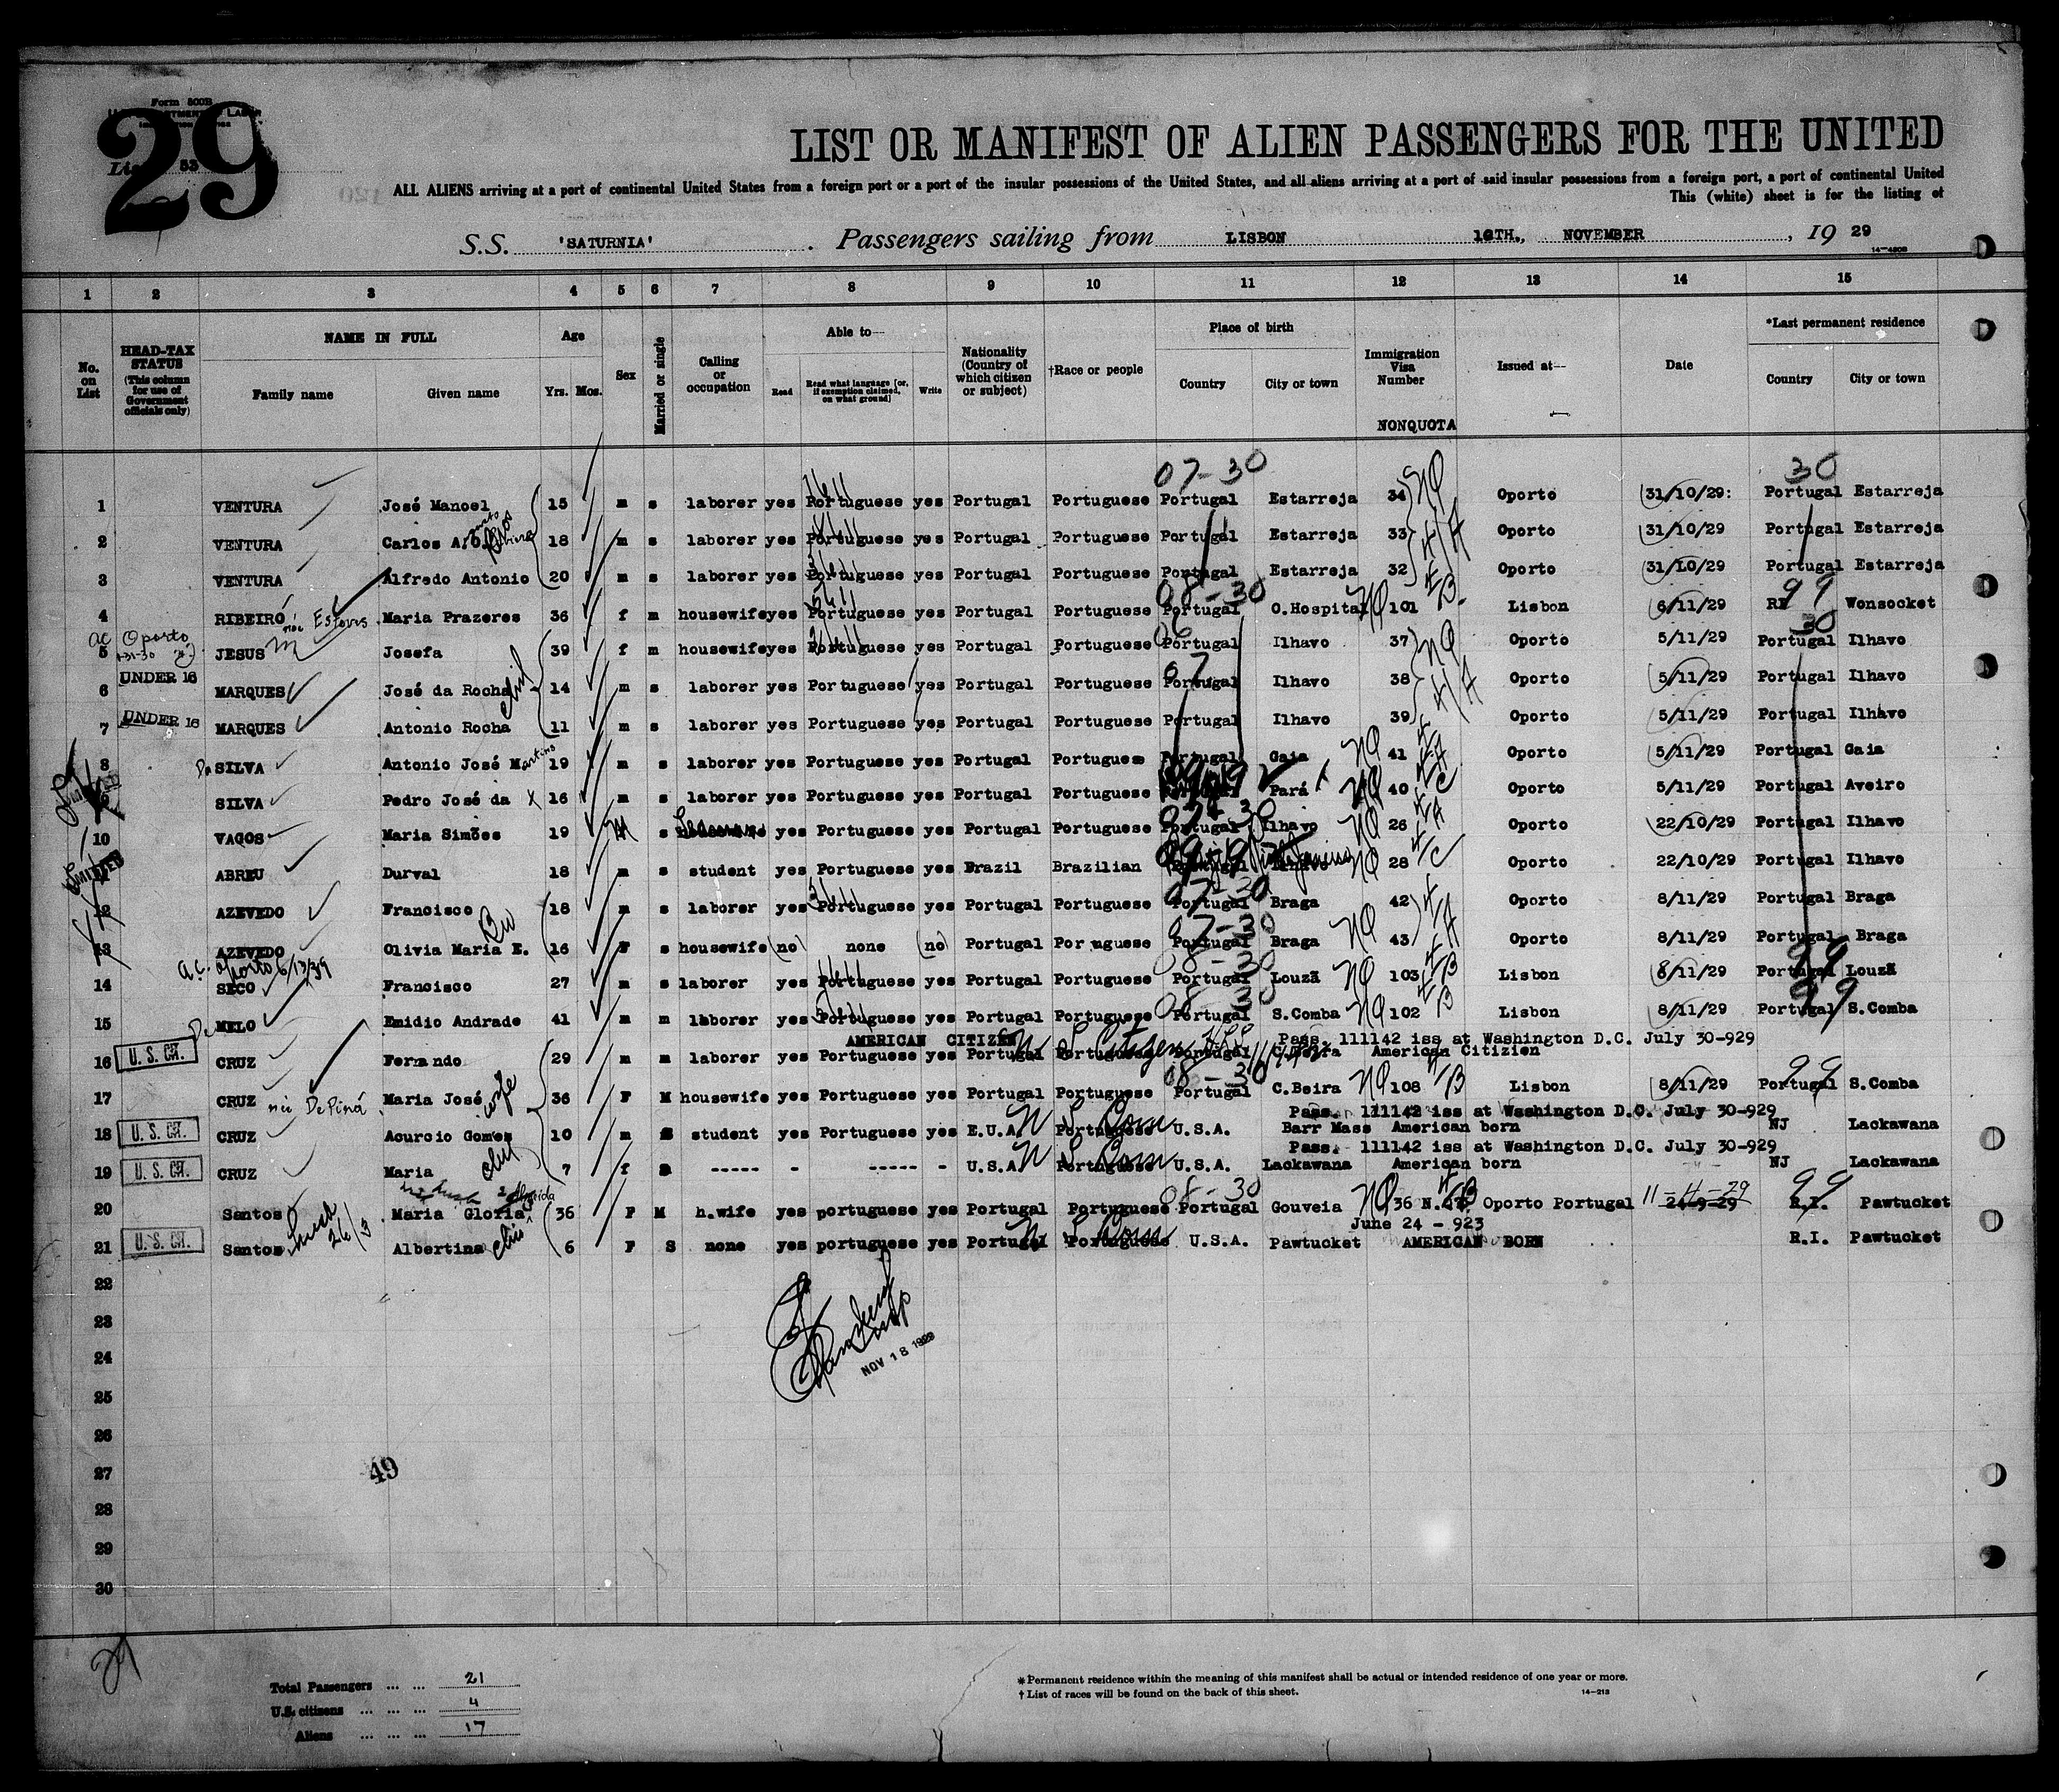 Form 500B
29
List 53
LIST OR MANIFEST OF ALIEN PASSENGERS FOR THE UNITED
ALL ALIENS arriving at a port of continental United States from a foreign port or a port of the insular possessions of the United States, and all aliens arriving at a port of said insular possessions from a foreign port, a port of continental United
This (white) sheet is for the listing of
S.S. 'SATURNIA' . Passengers sailing from LISBON 10TH., NOVEMBER , 19 29
1 2 3 4 5 6 7 8 9 10 11 12 13 14 15
No. on List HEAD-TAX STATUS (This column for use of Government officials only) NAME IN FULL Family name Given name Age Yrs. Mos. Sex Married or single Calling or occupation Able to— Read Read what language [or, if exemption claimed, on what ground] Write Nationality (Country of which citizen or subject) †Race or people Place of birth Country City or town Immigration Visa Number NONQUOTA Issued at— Date *Last permanent residence Country City or town
07-30 30
1 VENTURA José Manoel 15 m s laborer yes Portuguese yes Portugal Portuguese Portugal Estarreja 34 NQ Oporto 31/10/29: Portugal Estarreja
2 VENTURA Carlos A. 18 m s laborer yes Portuguese yes Portugal Portuguese Portugal Estarreja 33 Oporto 31/10/29 Portugal Estarreja
3 VENTURA Alfredo Antonio 20 m s laborer yes Portuguese yes Portugal Portuguese Portugal Estarreja 32 Oporto 31/10/29 Portugal Estarreja
08-30 99
4 RIBEIRO Esteves Maria Prazeres 36 f m housewife yes Portuguese yes Portugal Portuguese Portugal O.Hospital NQ 101 Lisbon 6/11/29 RI Wonsocket
5 Oporto JESUS Josefa 39 f m housewife yes Portuguese yes Portugal Portuguese Portugal Ilhavo 37 NQ Oporto 5/11/29 Portugal Ilhavo
6 UNDER 16 MARQUES José da Rocha 14 m s laborer yes Portuguese yes Portugal Portuguese Portugal Ilhavo 38 Oporto 5/11/29 Portugal Ilhavo
7 UNDER 16 MARQUES Antonio Rocha 11 m s laborer yes Portuguese yes Portugal Portuguese Portugal Ilhavo 39 Oporto 5/11/29 Portugal Ilhavo
8 Da SILVA Antonio José Martins 19 m s laborer yes Portuguese yes Portugal Portuguese Portugal Gaia NQ 41 Oporto 5/11/29 Portugal Gaia
SILVA Pedro José da X 16 m s laborer yes Portuguese yes Portugal Portuguese Pará NQ 40 Oporto 5/11/29 Portugal Aveiro
10 VAGOS Maria Simões 19 M s yes Portuguese yes Portugal Portuguese Portugal Ilhavo NQ 26 Oporto 22/10/29 Portugal Ilhavo
ABREU Durval 18 m s student yes Portuguese yes Brazil Brazilian NQ 28 Oporto 22/10/29 Portugal Ilhavo
12 AZEVEDO Francisco 18 m s laborer yes Portuguese yes Portugal Portuguese Portugal Braga 42 Oporto 8/11/29 Portugal Braga
13 AZEVEDO Olivia Maria E. 16 F s housewife (no) none (no) Portugal Portuguese Portugal Braga NQ 43 Oporto 8/11/29 Portugal Braga
a.c. Oporto 6/13/39
14 SECO Francisco 27 m s laborer yes Portuguese yes Portugal Portuguese Portugal Louzã NQ 103 Lisbon 8/11/29 Portugal Louzã
15 De MELO Emidio Andrade 41 m m laborer yes Portuguese yes Portugal Portuguese Portugal S.Comba NQ 102 Lisbon 8/11/29 Portugal S.Comba
AMERICAN CITIZEN Pass. 111142 iss at Washington D.C. July 30-929
16 U. S. CIT. CRUZ Fernando 29 m m laborer yes Portuguese yes Portugal Portuguese Portugal C.Beira American Citizien
17 CRUZ née De Pina Maria José wife 36 F M housewife yes Portuguese yes Portugal Portuguese Portugal C.Beira NQ 108 Lisbon 8/11/29 Portugal S.Comba
Pass. 111142 iss at Washington D.C. July 30-929
18 U. S. CIT. CRUZ Acurcio Gomes 10 m S student yes Portuguese yes E.U.A. Portuguese U.S.A. Barr Mass American born NJ Lackawana
Pass. 111142 iss at Washington D.C. July 30-929
19 U. S. CIT. CRUZ Maria 7 f s ----- - ----- - U.S.A. Portuguese U.S.A. Lackawana American born NJ Lackawana
08-30 99
20 Santos Maria Gloria 36 F M h.wife yes portuguese yes Portugal Portuguese Portugal Gouveia NQ 36 Oporto Portugal 11-4-29 24-9-29 R.I. Pawtucket
June 24 - 923
21 U. S. CIT. Santos Albertina 6 F S none yes portuguese yes Portugal Portuguese U.S.A. Pawtucket AMERICAN BORN R.I. Pawtucket
22
23
24
NOV 18 1929
25
26
27
49
28
29
30
29
Total Passengers ... ... 21
U.S. citizens ... ... ... 4
Aliens ... ... ... 17
* Permanent residence within the meaning of this manifest shall be actual or intended residence of one year or more.
† List of races will be found on the back of this sheet. 14—213